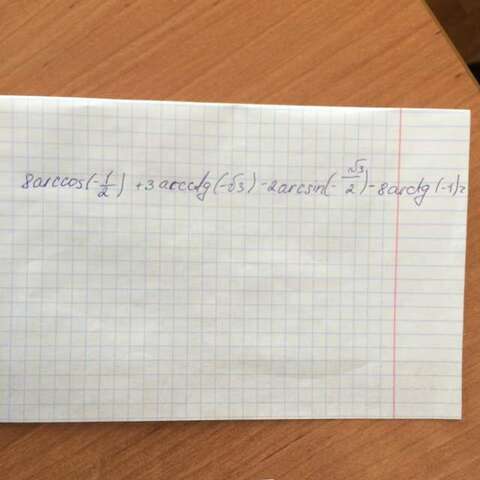 8arccos(-1/2) + 3arcctg(-√3) - 2arcsin(-√3/2) - 8arctg(-1)=